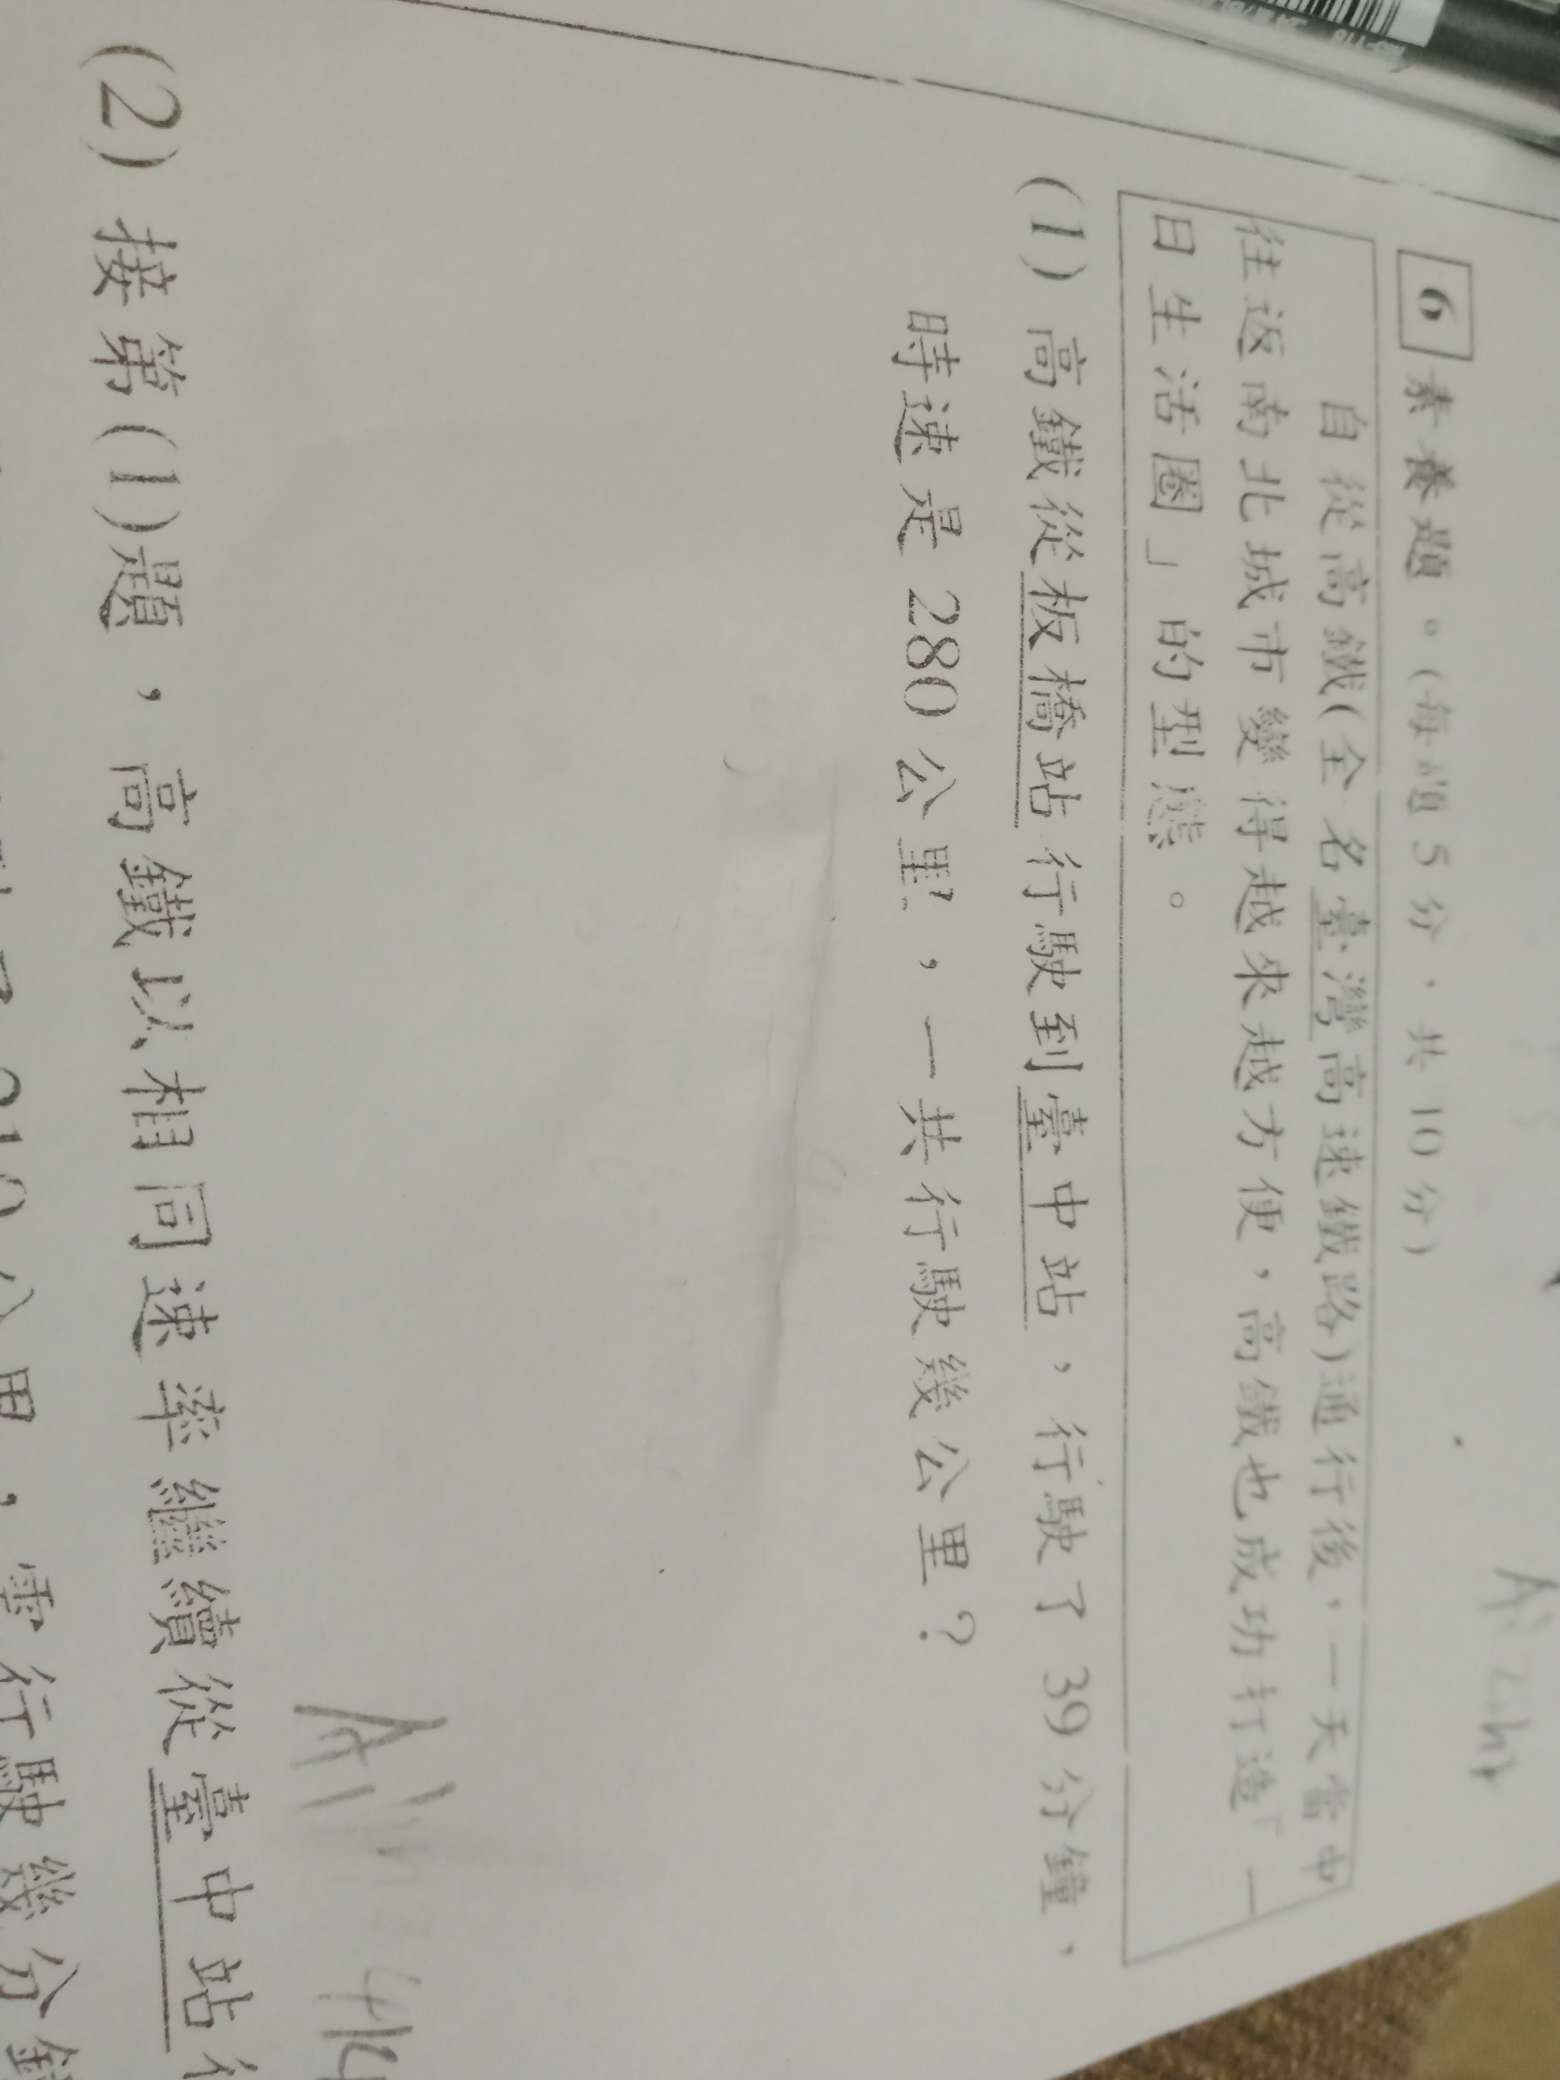 6 素養題。(每題5分,共10分)
自從高鐵(全名臺灣高速鐵路)通行後,一天當中
往返南北城市變得越來越方便,高鐵也成功打造「一
日生活圈」的型態。
(1)高鐵從板橋站行駛到臺中站,行駛了39分鐘,
時速是280公里,一共行駛幾公里?
(2)接第(1)題,高鐵以相同速率繼續從臺中站行
公里,需行駛幾分鐘